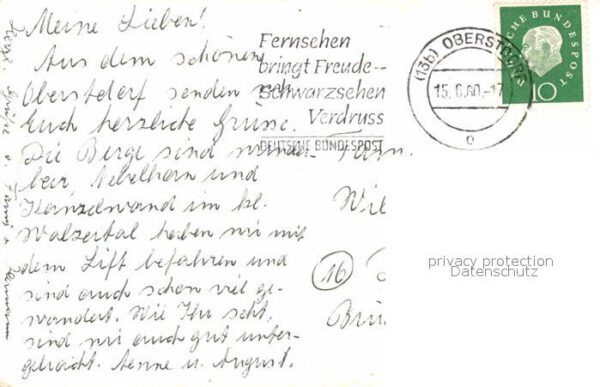 Meine Lieben!
Aus dem schönen
Oberstdorf senden wir
Euch herzliche Grüsse.
Die Berge sind wunder-
bar, Nebelhorn und
Kanzelwand im kl.
Walsertal haben wir mit
dem Lift befahren und
sind auch schon viel ge-
wandert. Wie Ihr seht,
sind wir auch gut unter-
gebracht. Aenne u. August.
Herzl. Grüße v.
Fernsehen
bringt Freude-
Schwarzsehen
Verdruss
DEUTSCHE BUNDESPOST
(13b) OBERSTDORF
15.6.60.-17
o
DEUTSCHE BUNDESPOST
10
Fam.
Wil
(16)
Brü
privacy protection
Datenschutz